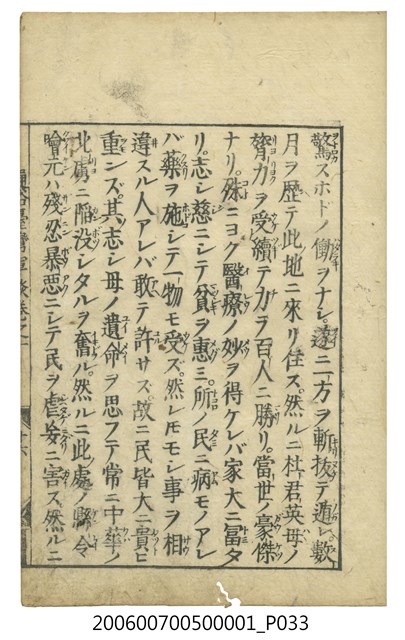 驚スホドノ働ヲナシ。遂ニ一方ヲ斬抜テ遁レ數
月ヲ歴テ此地ニ來リ住ス。然ルニ杜君英母ノ
膂力ヲ受續テ力ラ百人ニ勝リ。當世ノ豪傑
ナリ。殊ニヨク醫療ノ妙ヲ得ケレバ家大ニ冨タ
リ。志シ慈ニシテ貧ヲ惠ミ。所ノ民ニ病モノアレ
バ藥ヲ施シテ一物モ受ズ。然レ𪜈モシ事ヲ相
違スル人アレバ敢テ許サズ。故ニ民皆大ニ貴ヒ
重ンズ。其志シ母ノ遺命ヲ思フテ常ニ中華ノ
北虜ニ陥没シタルヲ奮ル。然ルニ此處ノ縣令
噲元ハ殘忍暴惡ニシテ民ヲ虐ケ妄ニ害ス。然ルニ
十六
200600700500001_P033